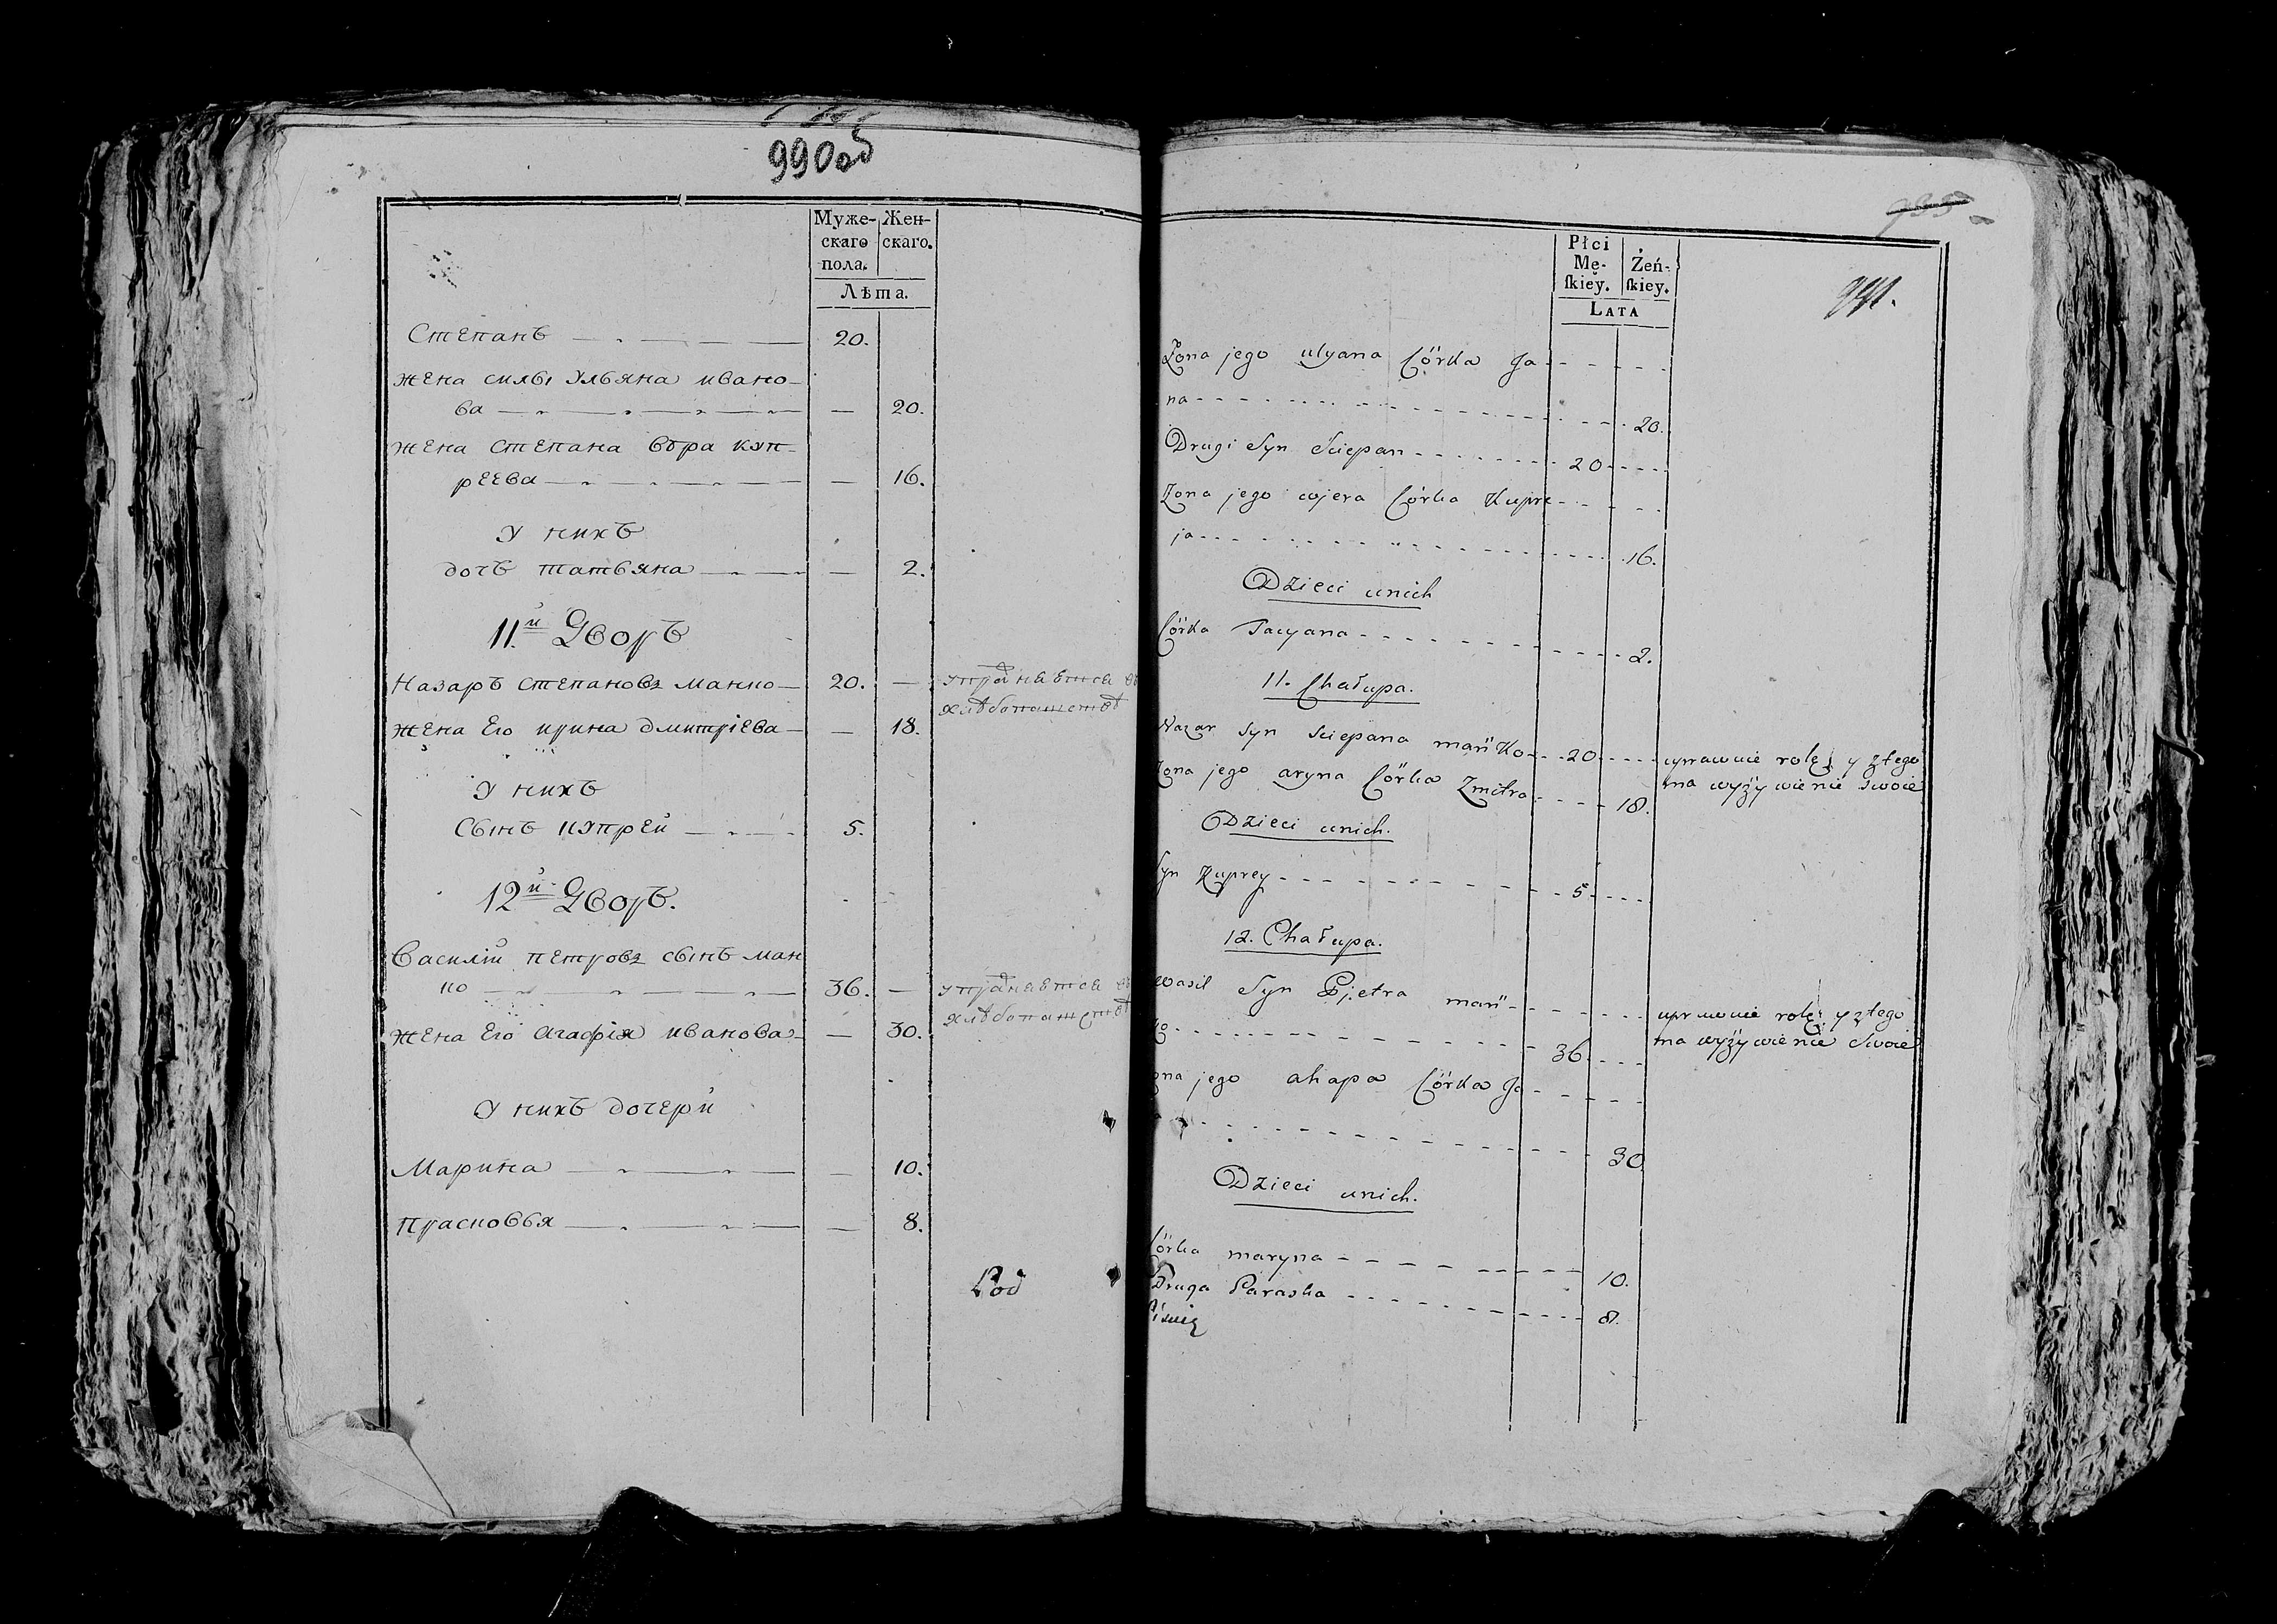 990 об
Муже- Жен-
скаго скаго.
пола.
Лѣта.
Степанъ 20.
жена силы Ульяна ивано-
ва — 20.
жена степана вѣра куп-
рѣева — 16.
У нихъ
дочь татьяна — 2.
11.й Дворъ
Назаръ степановъ манко 20. — упражняется въ
хлѣбопашествѣ
жена Его ирина дмитріева — 18.
У нихъ
Сынъ купрей 5.
12й Дворъ.
Василій петровъ сынъ ман
ко 36. — упражняется въ
хлѣбопашествѣ
жена Его агафія иванова — 30.
У нихъ дочери
Марина — 10.
прасковья — 8.
Под
995
991.
Płci
Mę- Żeń-
skiey. skiey.
LATA
Żona jego ulyana Córka Ja
na 20.
Drugi Syn Sciepan 20
Żona jego wjera Córka Kupre
ja 16.
Dzieci unich
Córka Tacyana 2.
11. Chałupa.
Nazar Syn Sciepana mańko 20 uprawuie rolę y ztego
ma wyżywienie swoie
Żona jego aryna Córka Zmitra 18.
Dzieci unich.
Syn Kuprey 5
12. Chałupa.
wasil Syn Pjetra mań
ko 36 uprawuie rolę y ztego
ma wyżywienie swoie
Żona jego ahapa Córka Ja
30
Dzieci unich.
Córka maryna 10.
Druga Paraska 8.